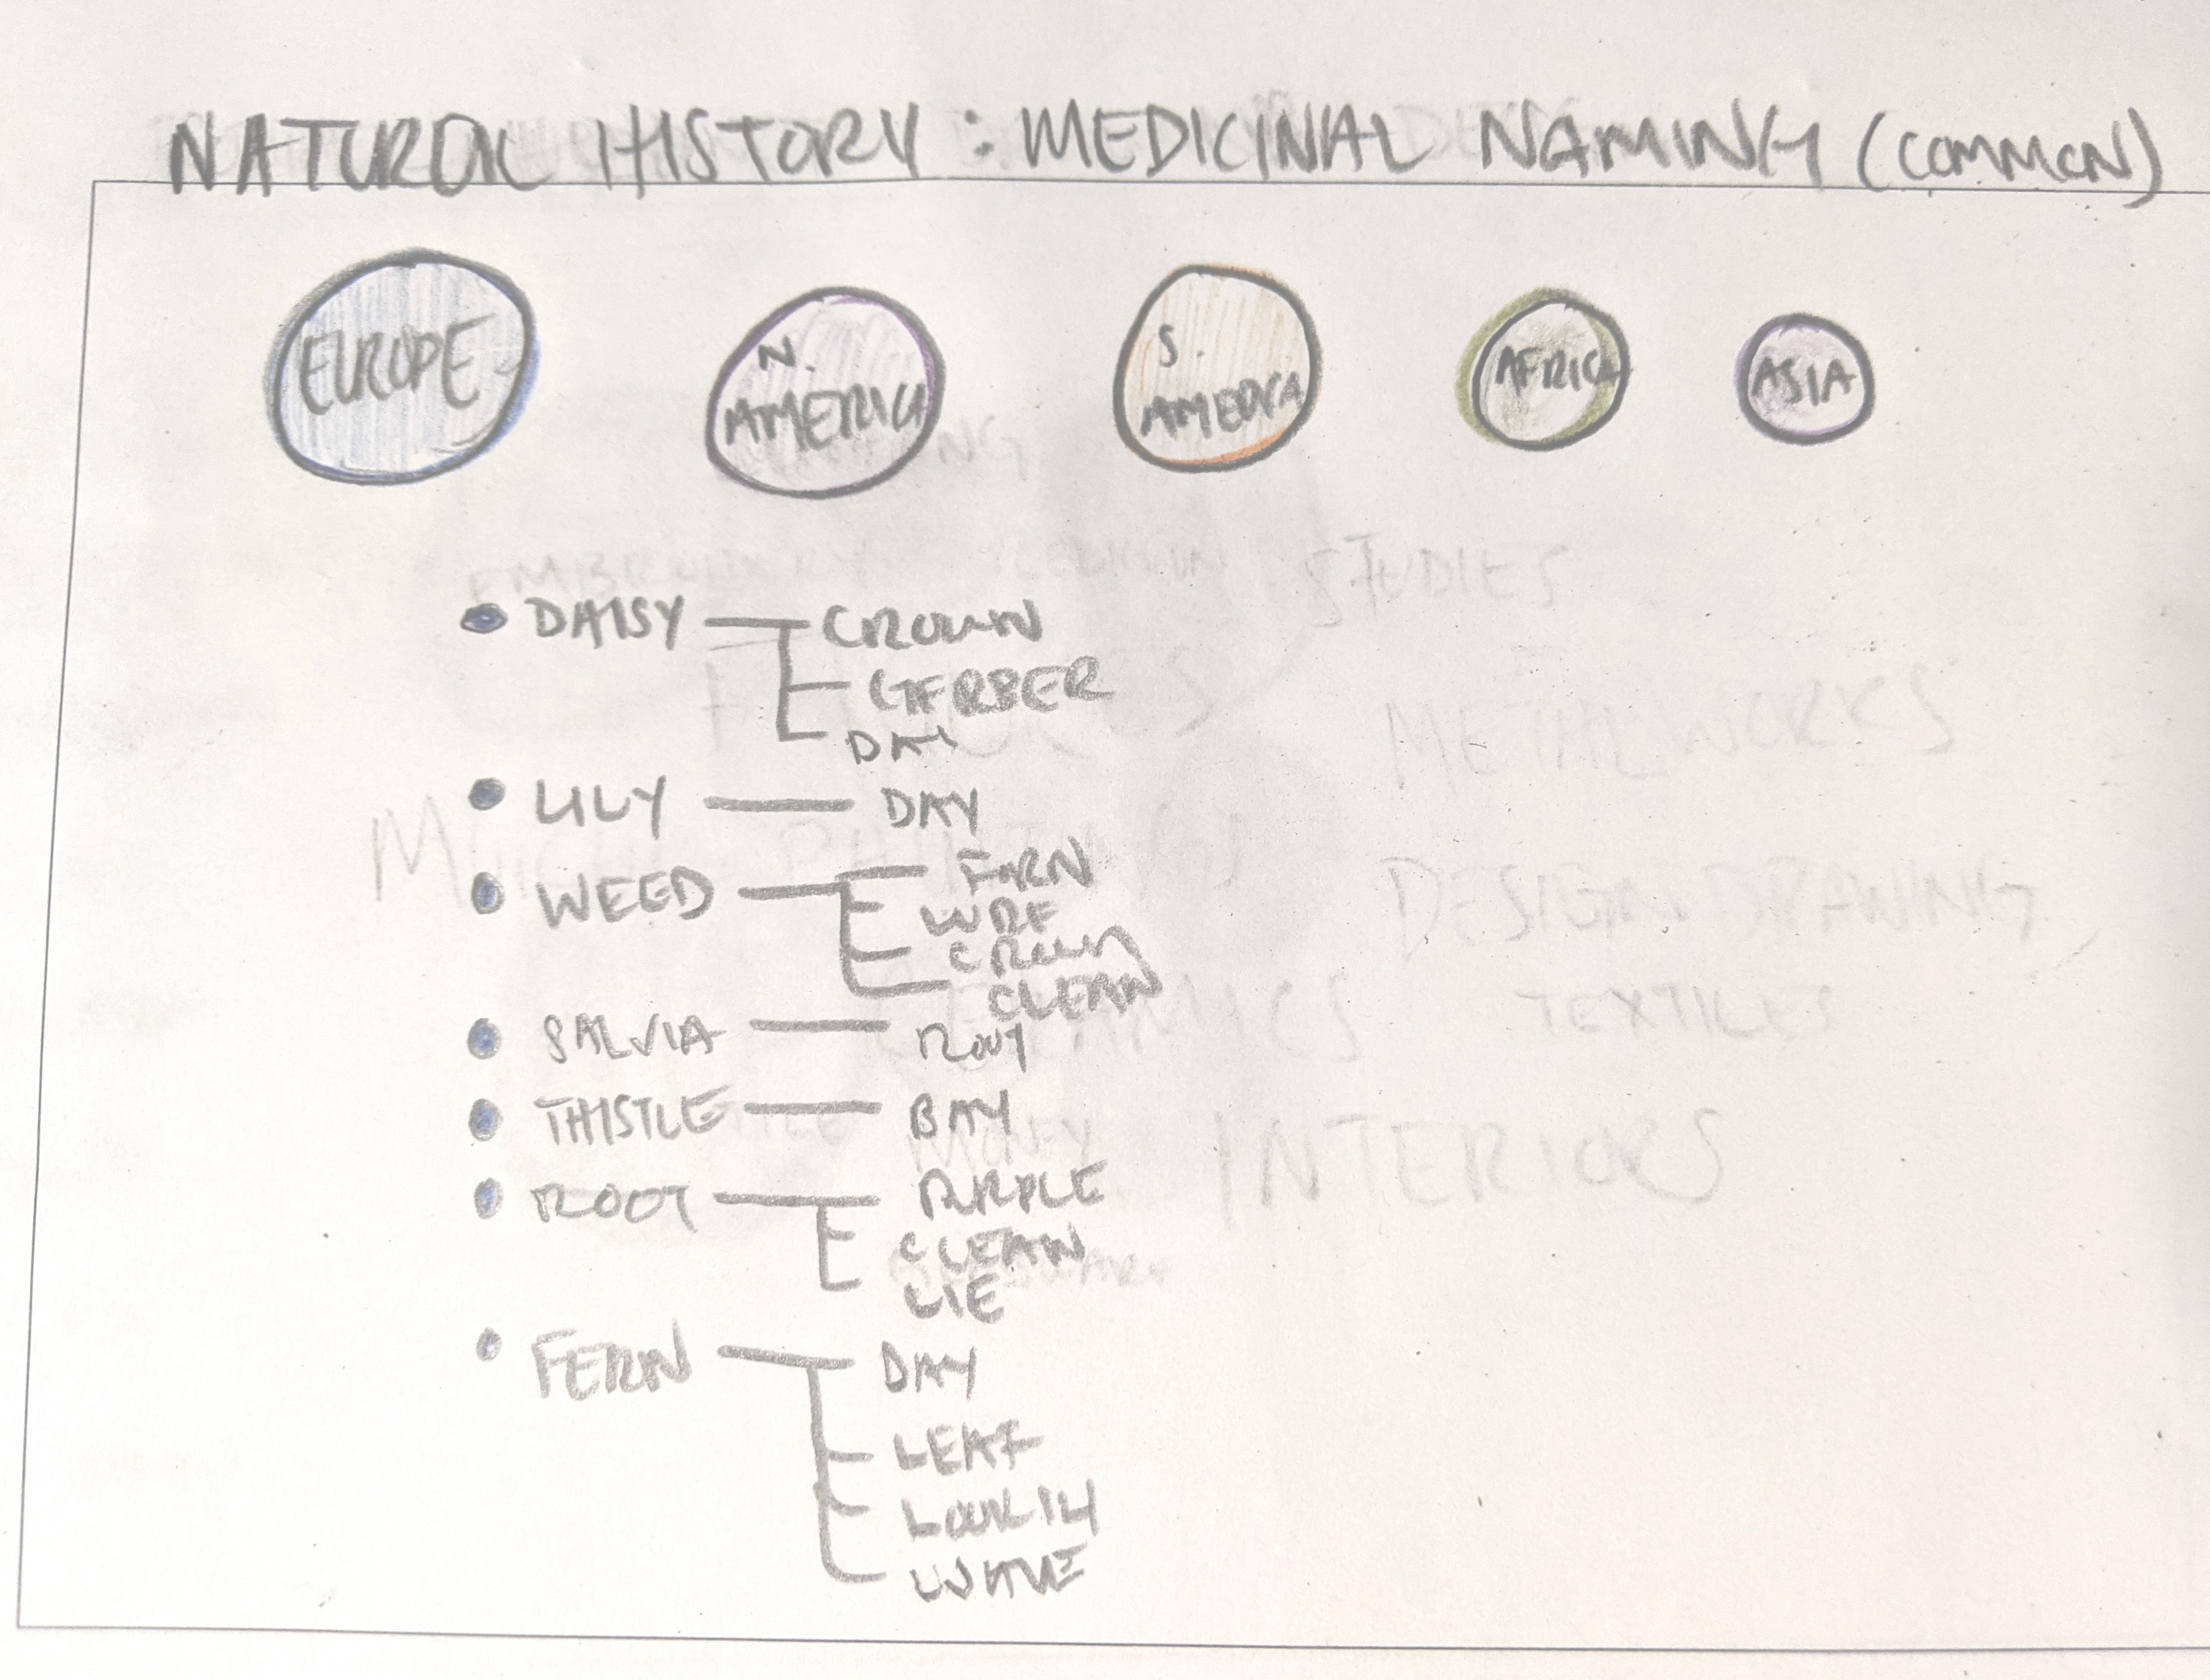 NATURAL HISTORY : MEDICINAL NAMING (COMMON)
EUROPE
N. AMERICA
S. AMERICA
AFRICA
ASIA
DAISY
CROWN
GERBER
DAI
LILY
DAY
WEED
CROWN
CLEAN
SALVIA
ROOT
THISTLE
BAY
ROOT
PURPLE
CLEAN
LIE
FERN
DAY
LEAF
STUDIES
METALWORKS
DESIGN DRAWING
TEXTILES
INTERIORS